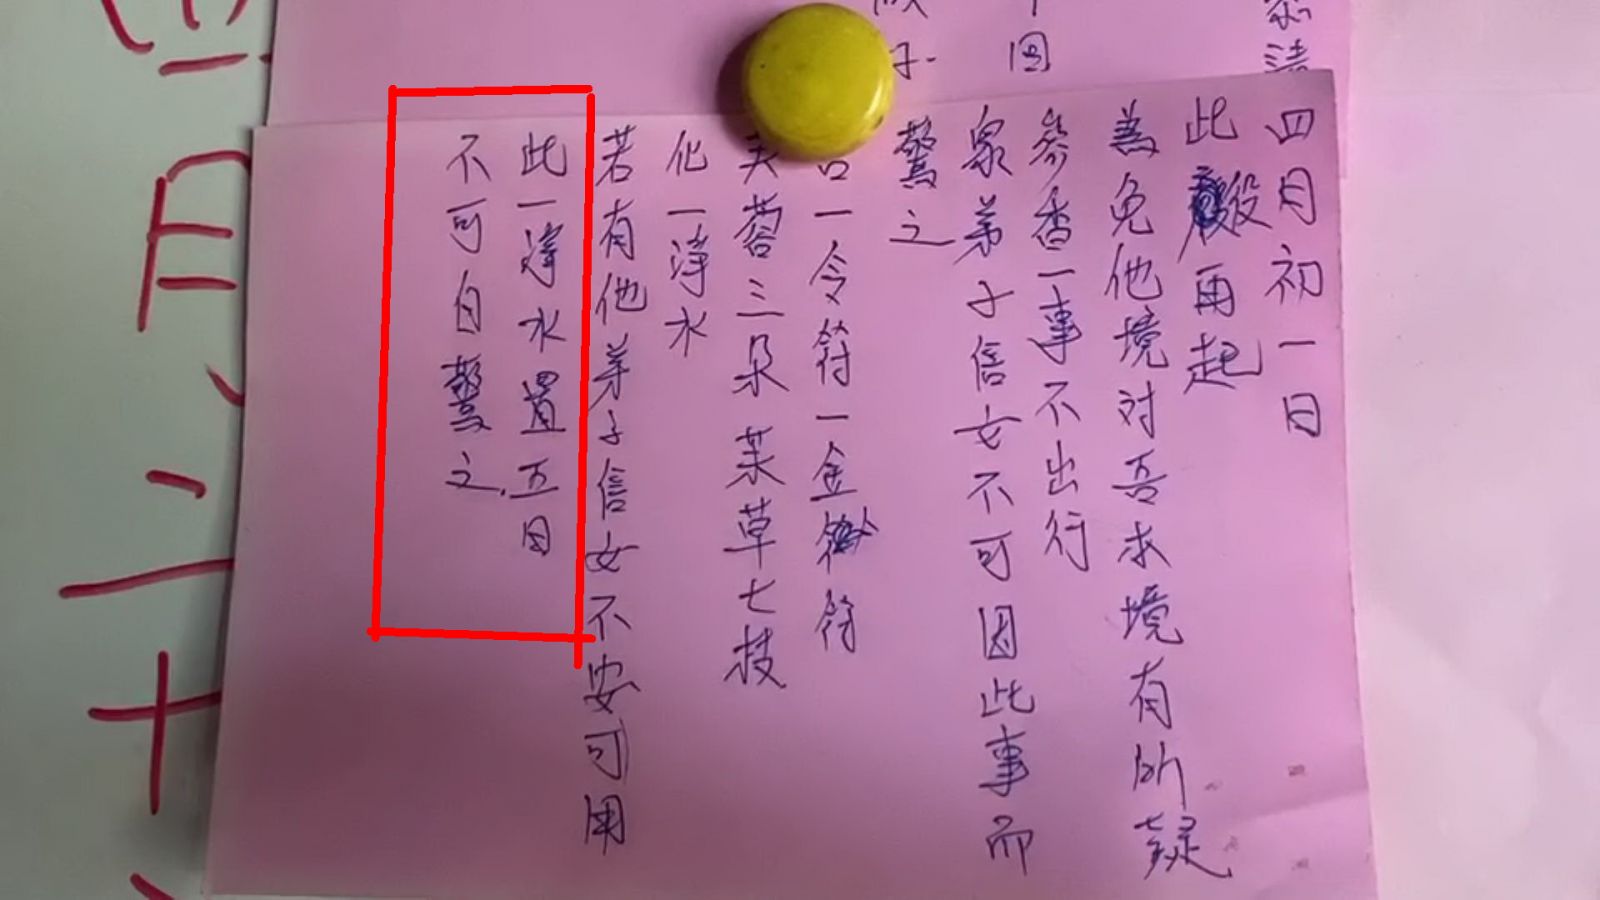 四月初一日
此役再起
為免他境対吾求境有所疑
參香一事不出行
眾弟子信女不可因此事而
驚之
一令符一金符
芙蓉三朵茉草七技
化一淨水
若有他弟子信女不安可用
此一淨水置五日
不可自驚之.